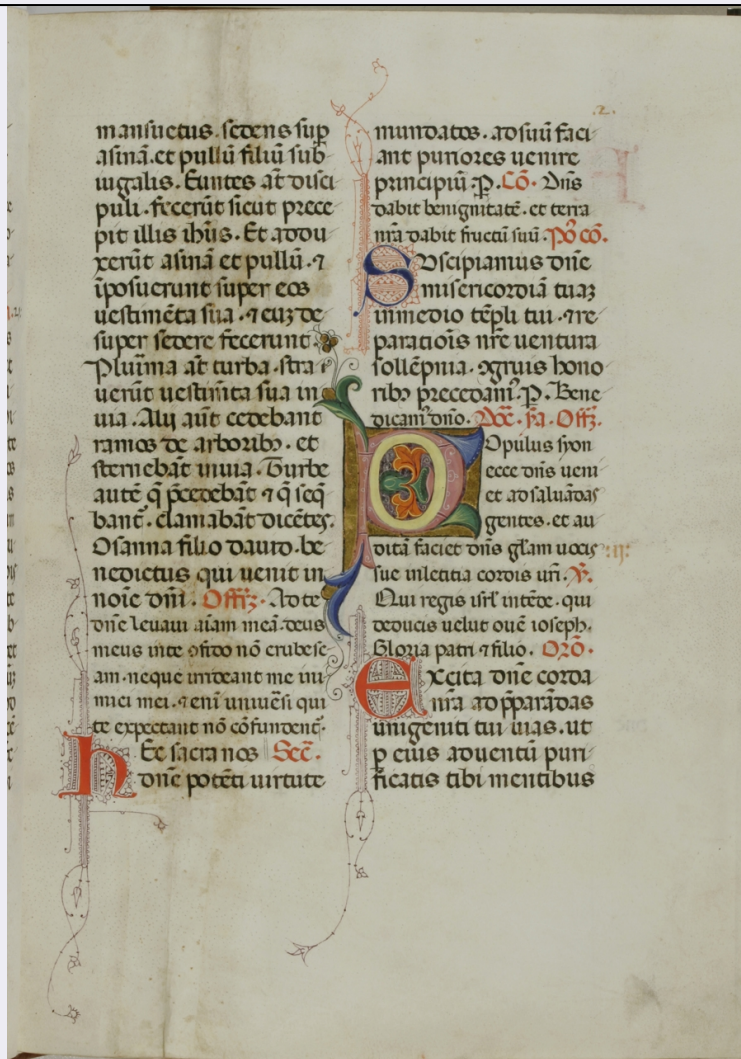 .2.
mansuetus. sedens sup
asinā. et pullū filiū sub
iugalis. Euntes at̄ disci
puli. fecerūt sicut prece
pit illis ihūs. Et addu
xerūt asinā et pullū. ⁊
īposuerunt super eos
uestimēta sua. ⁊ euꝫ de
super sedere fecerunt.
Pluⁱma at̄ turba. stra
uerūt uestimēta sua in
uia. Alij aūt cedebant
ramos de arboribꝰ. et
sternebāt inuia. Turbe
autē q̄ p̄cedebāt ⁊ q̄ seq̄
bant̄. clamabāt dicētes.
Osanna filio dauid. be
nedictus qui uenit in
noīe dn̄i. Offꝫ. Ad te
dn̄e leuaui aīam meā. deus
meus inte ꝯfido nō erubesc
am. neque irrideant me ini
mici mei. ⁊ enī uniuēsi qui
te expectant nō cōfundent̄.
HEc sacra nos Sēc.
dn̄e potēti uirtute
mundatos. ad suū faci
ant puriores uenire
principiū. P. Cō. Dn̄s
dabit benignitatē. et terra
nr̄a dabit fructū suū. Po cō.
SVscipiamus dn̄e
misericordiā tuaꝫ
in medio tēpli tui. ⁊ re
parationis nr̄e uentura
sollēpnia. ꝯgruis hono
ribꝰ precedamꝰ. P. Bene
dicamꝰ dn̄o. Dōc. ija. Offꝫ.
POpulus syon
ecce dn̄s ueni
et ad saluādas
gentes. et au
ditā faciet dn̄s gl̄am uocis
sue inletitia cordis ur̄i. V.
Qui regis isrl̄ intēde. qui
deducis uelut ouē ioseph.
Gloria patri ⁊ filio. Orō.
Excita dn̄e corda
nr̄a ad p̄parādas
unigeniti tui uias. ut
ꝑ eius aduentū puri
ficatis tibi mentibus